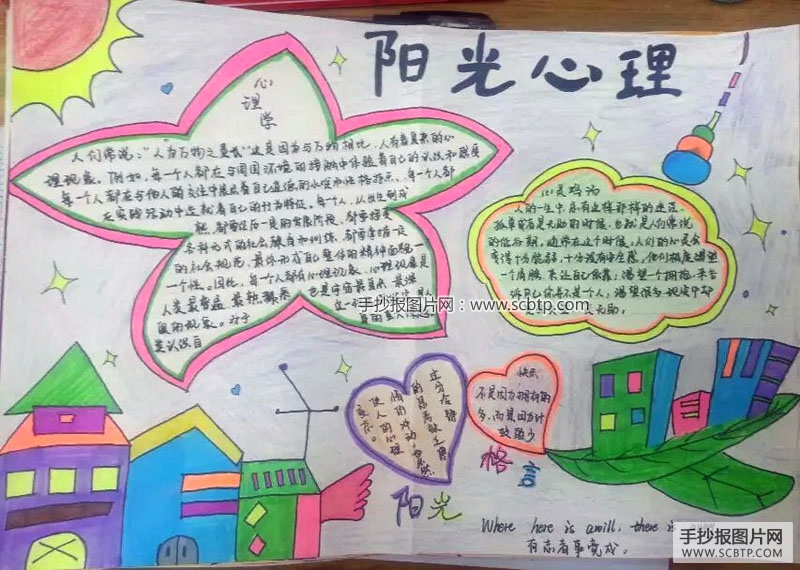 阳光心理
心
理
学
人们常说:“人为万物之灵长”这是因为与万物相比,人有着复杂的心
理现象。例如,每一个人都在与周围环境的接触中体验着自己的认识和感受
每一个人都在与他人的交往中展示着自己道德的水空和性格特点,每一个人都
在实践活动中造就着自己的行为特征。每一个人,从出生到成
熟,都要经历一定的发展阶段,都要接受
各种形式的社会教育和训练,都要掌握一定
的社会规范,最终形成自己整体的精神面貌
一个性。因比,每一个人都有心理现象,心理现象是
人类最普遍、最熟悉
直的现象。对于
类认识自
心灵鸡汤
人的一生中总有这样那样的迷茫、
孤单或者是无助的时候,也就是人们常说
的低谷期,通常在这个时候,人们的心灵会
变得十分脆弱,十分没有安全感,他们极度渴望
一个肩膀,来让自己依靠;渴望一个拥抱,来告
诉自己你并不是一个人;渴望很多现实中却
无助。
手抄报图片网:www.scbtp.com
过分冷静
的思考
使人的心理
快乐
不是因为拥有的
多,而是因为计
较的少
格言
阳光
Where here is awill, there is
有志者事竟成。
手抄报图片网
WWW.SCBTP.COM